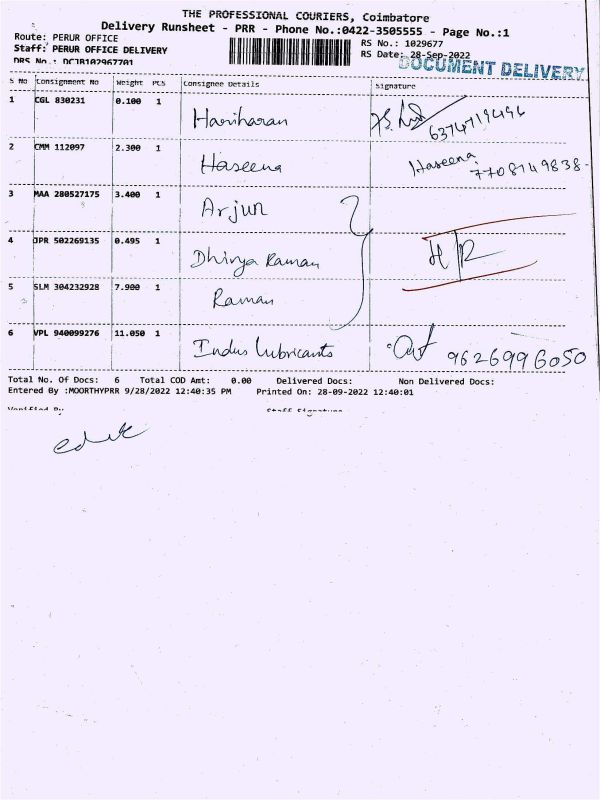 THE PROFESSIONAL COURIERS, Coimbatore
Delivery Runsheet - PRR - Phone No.:0422-3505555 - Page No.:1
Route: PERUR OFFICE
RS No.: 1029677
Staff: PERUR OFFICE DELIVERY
RS Date: 28-Sep-2022
DRS No.: DCJR102967701
DOCUMENT DELIVERY
S No Consignment No Weight PCS Consignee Details Signature
1 CGL 830231 0.100 1 Hariharan 6374719496
2 CMM 112097 2.300 1 Haseena Haseena 7708149838-
3 MAA 280527175 3.400 1 Arjun
4 JPR 502269135 0.495 1 Dhivya Raman H/R
5 SLM 304232928 7.900 1 Raman
6 VPL 940099276 11.050 1 Indus Lubricants 9626996050
Total No. Of Docs: 6 Total COD Amt: 0.00 Delivered Docs: Non Delivered Docs:
Entered By :MOORTHYPRR 9/28/2022 12:40:35 PM Printed On: 28-09-2022 12:40:01
Verified By Staff Signature